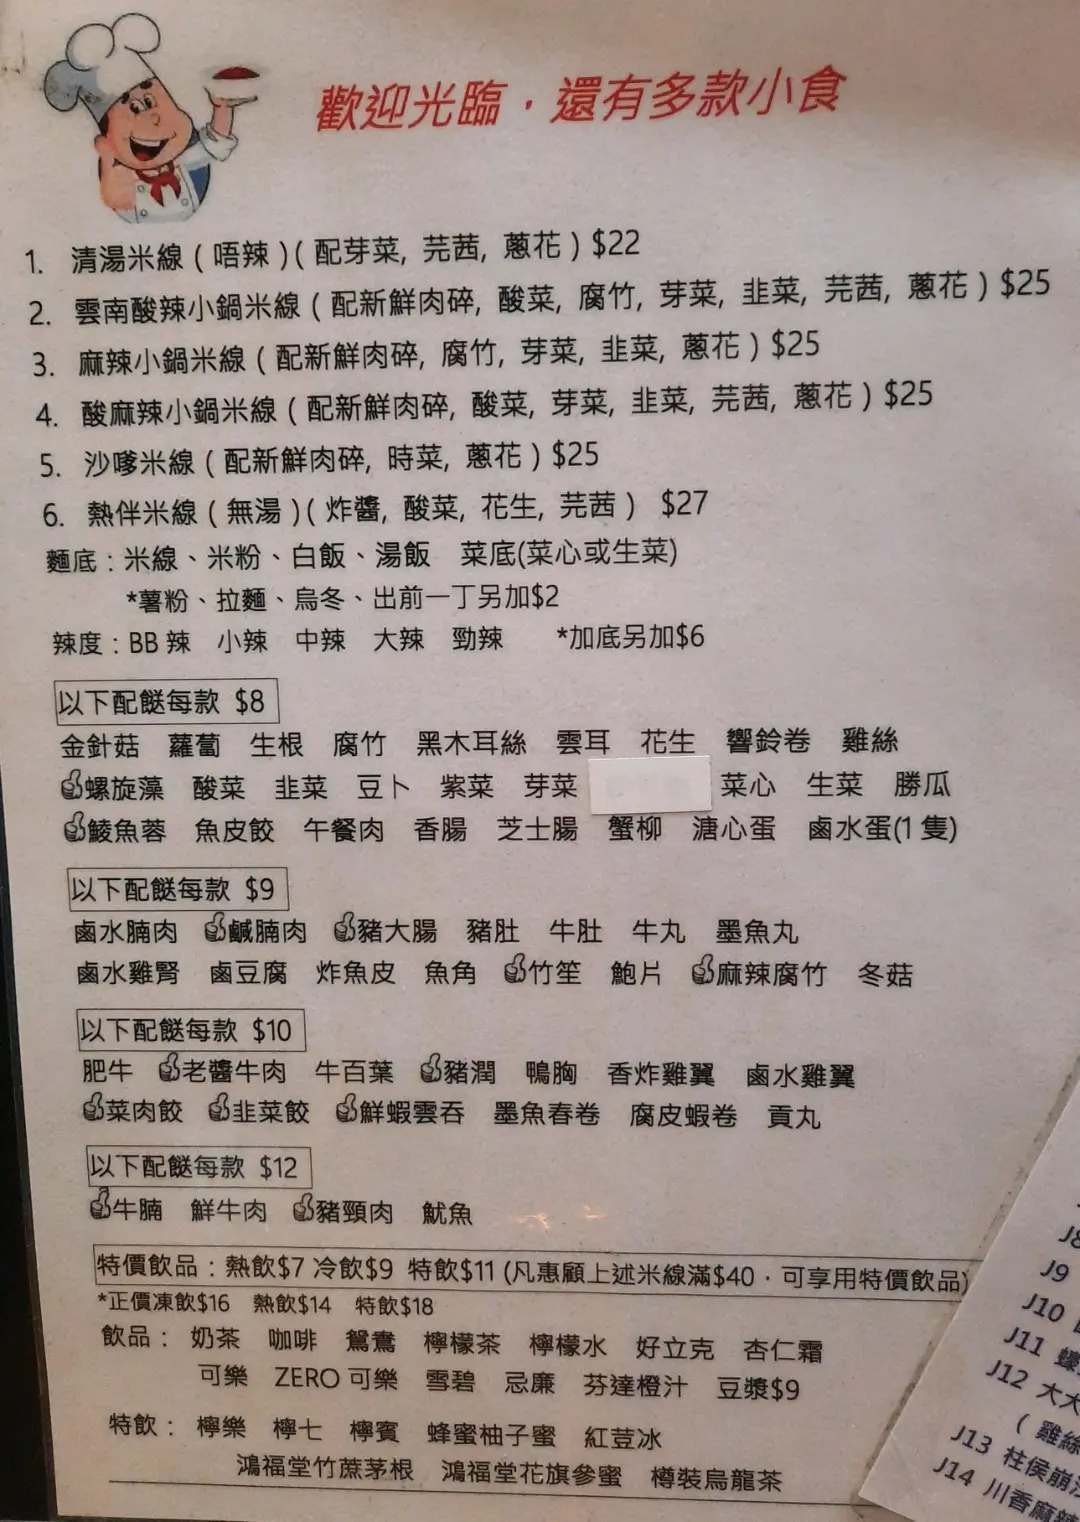 歡迎光臨，還有多款小食
1. 清湯米線 ( 唔辣 ) ( 配芽菜, 芫茜, 蔥花 ) $22
2. 雲南酸辣小鍋米線 ( 配新鮮肉碎, 酸菜, 腐竹, 芽菜, 韭菜, 芫茜, 蔥花 ) $25
3. 麻辣小鍋米線 ( 配新鮮肉碎, 腐竹, 芽菜, 韭菜, 蔥花 ) $25
4. 酸麻辣小鍋米線 ( 配新鮮肉碎, 酸菜, 芽菜, 韭菜, 芫茜, 蔥花 ) $25
5. 沙嗲米線 ( 配新鮮肉碎, 時菜, 蔥花 ) $25
6. 熱伴米線 ( 無湯 ) ( 炸醬, 酸菜, 花生, 芫茜 ) $27
麵底：米線、米粉、白飯、湯飯 菜底(菜心或生菜)
*薯粉、拉麵、烏冬、出前一丁另加$2
辣度：BB 辣 小辣 中辣 大辣 勁辣 *加底另加$6
以下配餸每款 $8
金針菇 蘿蔔 生根 腐竹 黑木耳絲 雲耳 花生 響鈴卷 雞絲
螺旋藻 酸菜 韭菜 豆卜 紫菜 芽菜 菜心 生菜 勝瓜
鯪魚蓉 魚皮餃 午餐肉 香腸 芝士腸 蟹柳 溏心蛋 鹵水蛋(1 隻)
以下配餸每款 $9
鹵水腩肉 鹹腩肉 豬大腸 豬肚 牛肚 牛丸 墨魚丸
鹵水雞腎 鹵豆腐 炸魚皮 魚角 竹笙 鮑片 麻辣腐竹 冬菇
以下配餸每款 $10
肥牛 老醬牛肉 牛百葉 豬潤 鴨胸 香炸雞翼 鹵水雞翼
菜肉餃 韭菜餃 鮮蝦雲吞 墨魚春卷 腐皮蝦卷 貢丸
以下配餸每款 $12
牛腩 鮮牛肉 豬頸肉 魷魚
特價飲品：熱飲$7 冷飲$9 特飲$11 (凡惠顧上述米線滿$40，可享用特價飲品)
*正價凍飲$16 熱飲$14 特飲$18
飲品： 奶茶 咖啡 鴛鴦 檸檬茶 檸檬水 好立克 杏仁霜
可樂 ZERO 可樂 雪碧 忌廉 芬達橙汁 豆漿$9
特飲： 檸樂 檸七 檸賓 蜂蜜柚子蜜 紅荳冰
鴻福堂竹蔗茅根 鴻福堂花旗參蜜 樽裝烏龍茶
J8
J9
J10
J11 蠔
J12 大大
( 雞絲
J13 柱侯崩
J14 川香麻辣